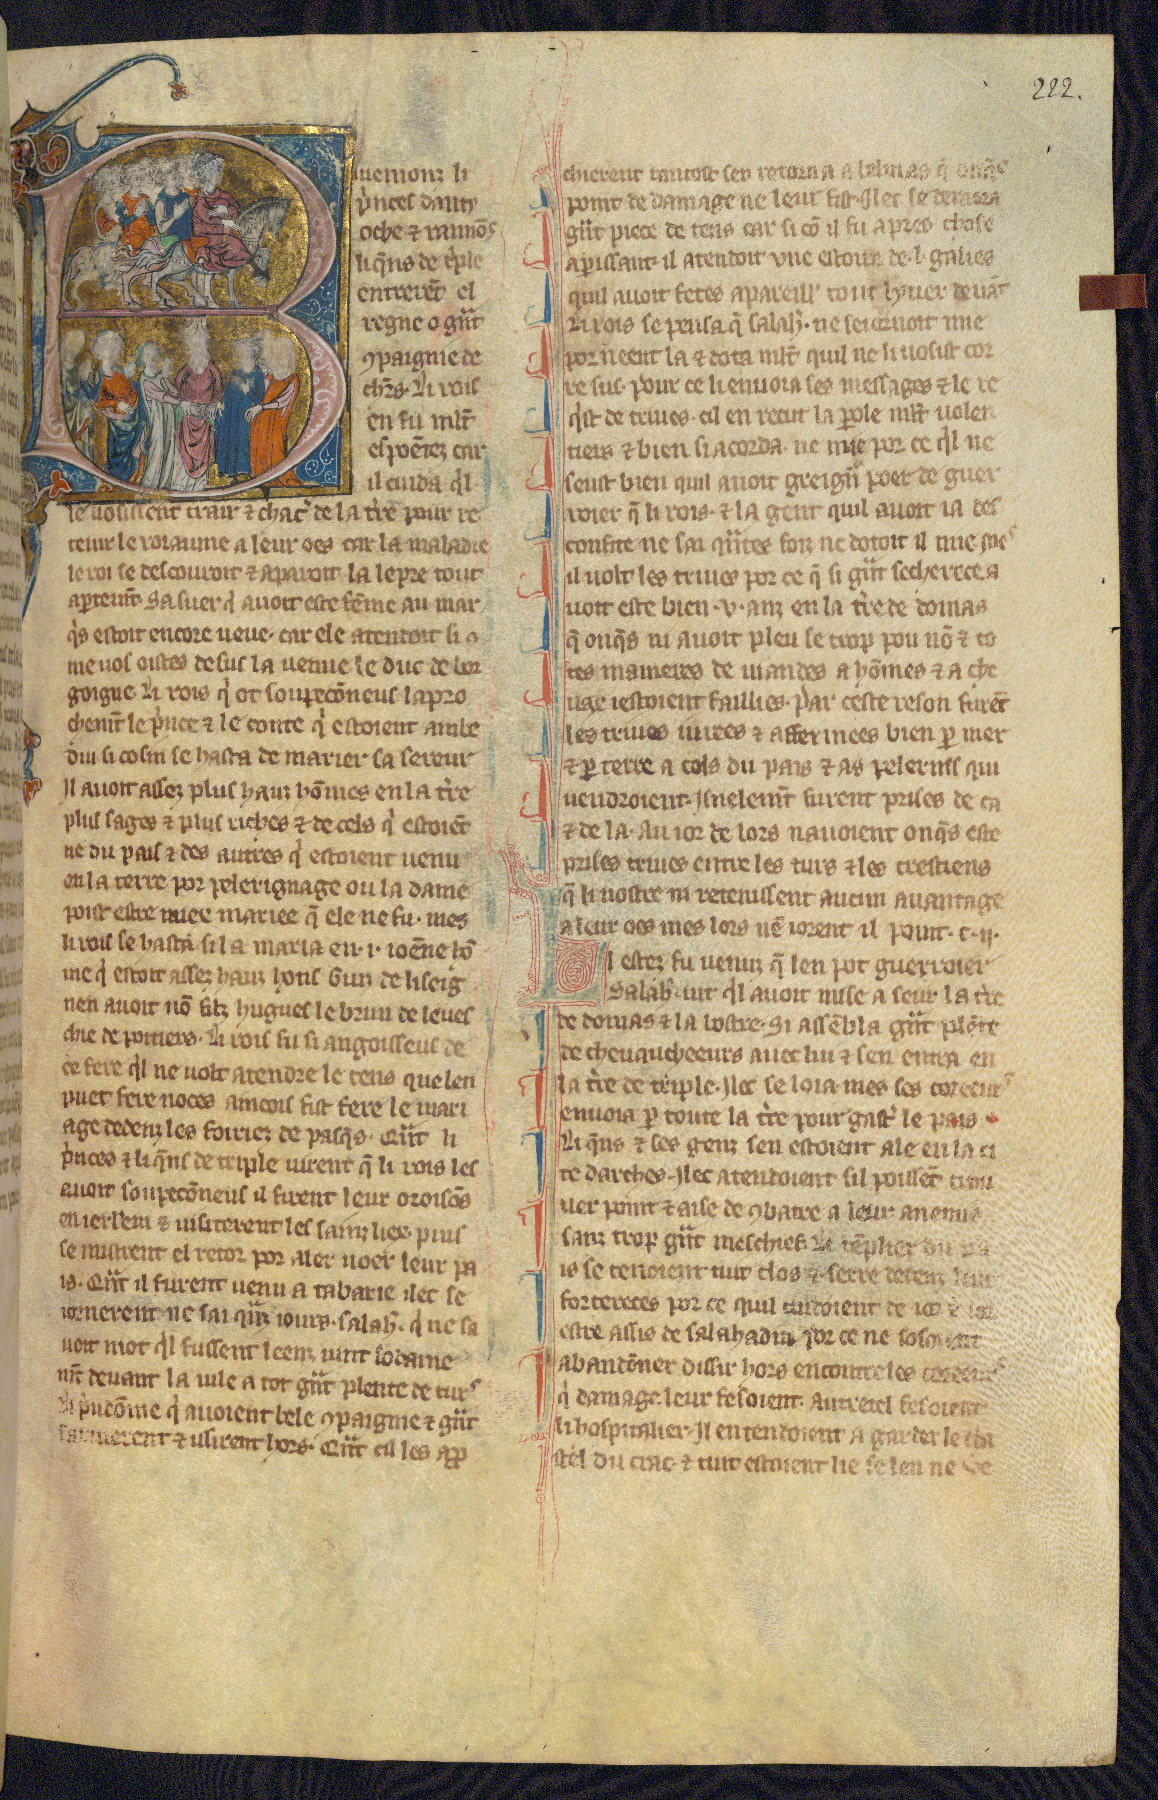 222.
B
uemonz li
p̓nces danty
oche ⁊ raimōs
li q̄ns de t̓ple
entrerēt el
regne o gn̄t
ꝯpaignie de
ch̄rs. Li rois
en fu ml̄t
espoētez car
il cuida q̓l
le uosissent trair ⁊ chac̓ de la t̓re pour re
tenir le roiaume a leur oes car la maladie
le roi se descouroit ⁊ aparoit la lepre tout
aꝑtemt̄. Sa suer q̓ auoit este fēme au mar
q̓s estoit encore ueue. car ele atendoit si ꝯ
me uos oistes desus la uenue le duc de bor
goigne. Li rois q̓ ot soupecōneus lapro
chemt̄ le p̓nce ⁊ le conte q̓ estoient ambe
dui si cosin se hasta de marier sa sereur
Il auoit assez plus hauz hōmes en la t̓re
plus sages ⁊ plus riches ⁊ de cels q̓ estoiēt
ne du pais ⁊ des autres q̓ estoient uenu
en la terre por pelerignage ou la dame
poist estre miex mariee q̄ ele ne fu. mes
li rois se hasta si la maria en .i. ioēne hō
me q̓ estoit assez hauz hons Guiz de liseig
nen auoit nō filz hugues le brun de leues
chie de poitiers. Li rois fu si angoisseus de
ce fere q̓l ne uolt atendre le tens que len
puet fere noces aincois fist fere le mari
age dedenz les foiriez de pasq̄s. Qn̄t li
p̓nces ⁊ li q̄ns de triple uirent q̄ li rois les
auoit soupecōneus il firent leur oroisōs
en ierlem̄ ⁊ uisiterent les sainz liex. puis
se mistrent el retor por aler ueer leur pa
is. Qn̄t il furent uenu a tabarie ilec se
iornerent ne sai qn̄z iours. salah̄. q̓ ne sa
uoit mot q̓l fussent leenz uint sodaine
mt̄ deuant la uile a tot gn̄t plente de turs
Li p̓udōme q̓ auoient bele ꝯpaignie ⁊ gn̄t
sarmerent ⁊ issirent hors. Qn̄t cil les aꝑ
chierent tantost sen retorna a belinas q̄ onq̄s
point de damage ne leur fist. Ilec se demora
gn̄t piece de tens car si cō il fu apres chose
aparissant. il atendoit une estoire de .l. galies
quil auoit fetes apareill' tout lyuer deuāt
Li rois se pensa q̄ salah̄. ne seiornoit mie
por neent la ⁊ dota ml̄t quil ne li uosist cor
re sus. pour ce li enuoia ses messages ⁊ le re
q̓st de triues. cil en recut la ꝑole ml̄t uolen
tiers ⁊ bien si acorda. ne mie por ce q̓l ne
seust bien quil auoit greign̄' poer de guer
roier q̄ li rois. ⁊ la gent quil auoit ia des
confite ne sai qn̄tes foiz ne dotoit il mie. mes
il uolt les triues por ce q̄ si gn̄t secherece a
uoit este bien .v. anz en la t̓re de domas
q̄ onq̄s ni auoit pleu se trop pou nō ⁊ to
tes manieres de uiandes a hōmes ⁊ a che
uax iestoient faillies. Par ceste reson furēt
les triues iurees ⁊ affermees bien ꝑ mer
⁊ ꝑ terre a cels du pais ⁊ as pelerins qui
uendroient. Isnelemt̄ furent prises de ca
⁊ de la. Au ior de lors nauoient onq̄s este
prises triues entre les turs ⁊ les crestiens
q̄ li nostre ni retenissent aucun auantage
a leur oes mes lors nē iorent il point. c. ij.
L i estez fu uenuz q̄ len pot guerroier
Salah̄. uit q̓l auoit mise a seur la t̓re
de domas ⁊ la bostre. Si assēbla gn̄t plēte
de cheuaucheeurs auec lui ⁊ sen entra en
la t̓re de triple. Ilec se loia mes ses coreeurs
enuoia ꝑ toute la t̓re pour gast̓ le pais
Li q̄ns ⁊ ses genz sen estoient ale en la ci
te darches. Ilec atendoient sil poissēt trou
uer point ⁊ aise de ꝯbatre a leur anemis
sanz trop gn̄t meschief. Li tēplier du pa
is se tenoient tuit clos ⁊ serre dedenz leur
forterceces por ce quil cuidoient de ior ē ior
estre assis de salahadin por ce ne sosoient
abandōner dissir hors encontre les coreeurs
q̓ damage leur fesoient. Autretel fesoient
li hospitalier. Il entendoient a garder le cha
stel du crac ⁊ tuit estoient lie se len ne